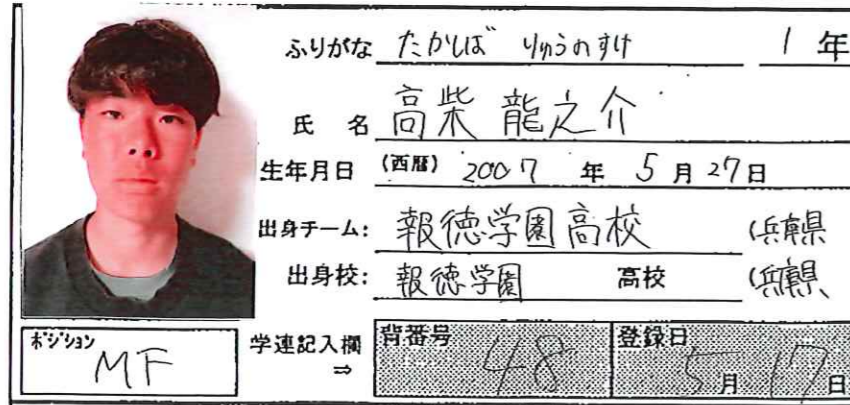 ふりがな たかしば りゅうのすけ 1 年
氏 名 高柴 龍之介
生年月日 (西暦) 2007 年 5 月 27 日
出身チーム: 報徳学園高校 (兵庫県
出身校: 報徳学園 高校 (兵庫県
ポジション MF
学連記入欄 ⇒
背番号 48
登録日 5 月 17 日